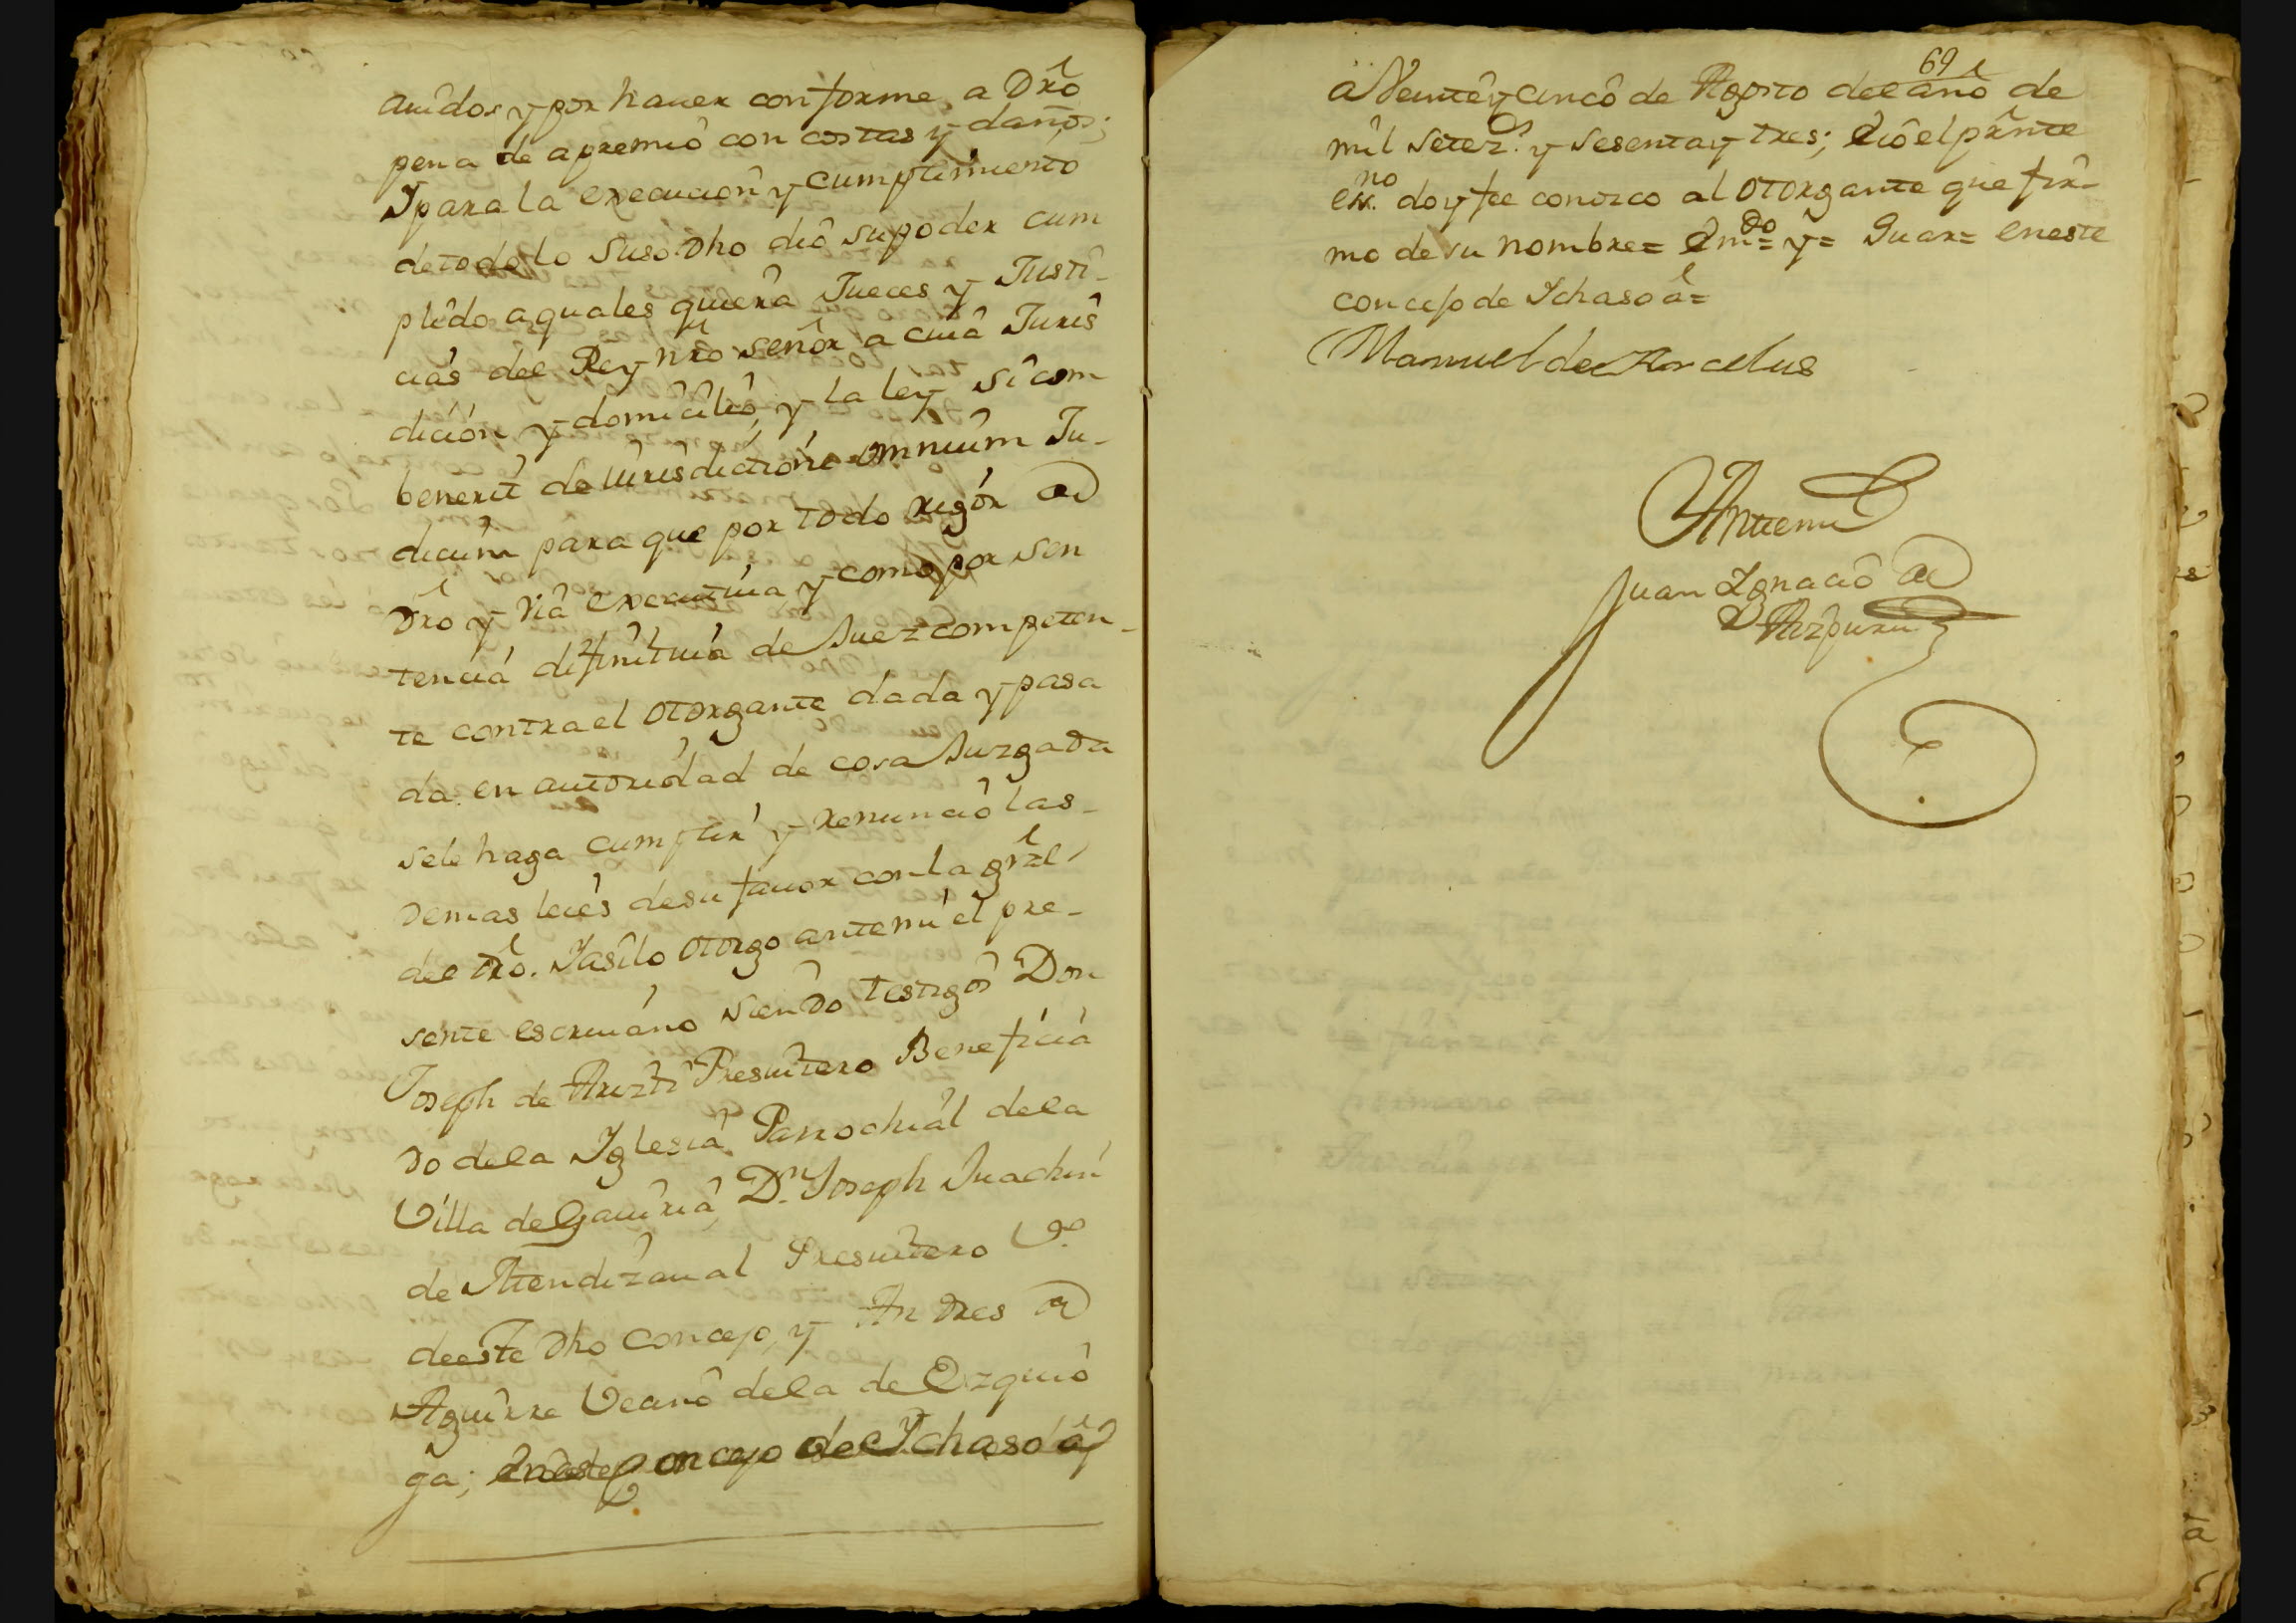 auidos y por hauer conforme, a Dro
pena de apremio con costas y daños;
Y para la execucion y cumplimiento
de todo lo suso dho dio su poder cum
plido a qualesquiera Jueces y Justi-
cias del Rey nro señor a cuia Juris
dicion y domicilio, y la ley si com
benerit de iurisdictione omnium Ju-
dicum para que por todo rigor de
Dro y via executiua y como por sen
tencia difinitiua de Juez competen-
te contra el otorgante dada y pasa
da en autoridad de cosa Juzgada
se le haga cumplir y renunció las
demas leies de su fauor con la gral
del dro. Y asi lo otorgo ante mi el pre-
sente escriuano siendo testigos Don
Joseph de Aruzti Presuitero Beneficia
do de la Iglesia Parrochial de la
Villa de Gauiria, Dn. Joseph Juachin
de Atendizaual Presuitero Vo.
de este dho concejo, y Andres de
Aguirre Vecino de la de Ezquio
ga; en este Concejo de Ychaso a
69
a Veinte y cinco de Agosto del año de
mil setezs. y sesenta y tres; e io el prnte
esno. doy fee conozco al otorgante que fir-
mo de su nombre= Emdo= y= Juar= en este
concejo de Ychaso a=
Manuel de Arcelus
Ante mi
Juan Ignacio de
Aizpuru